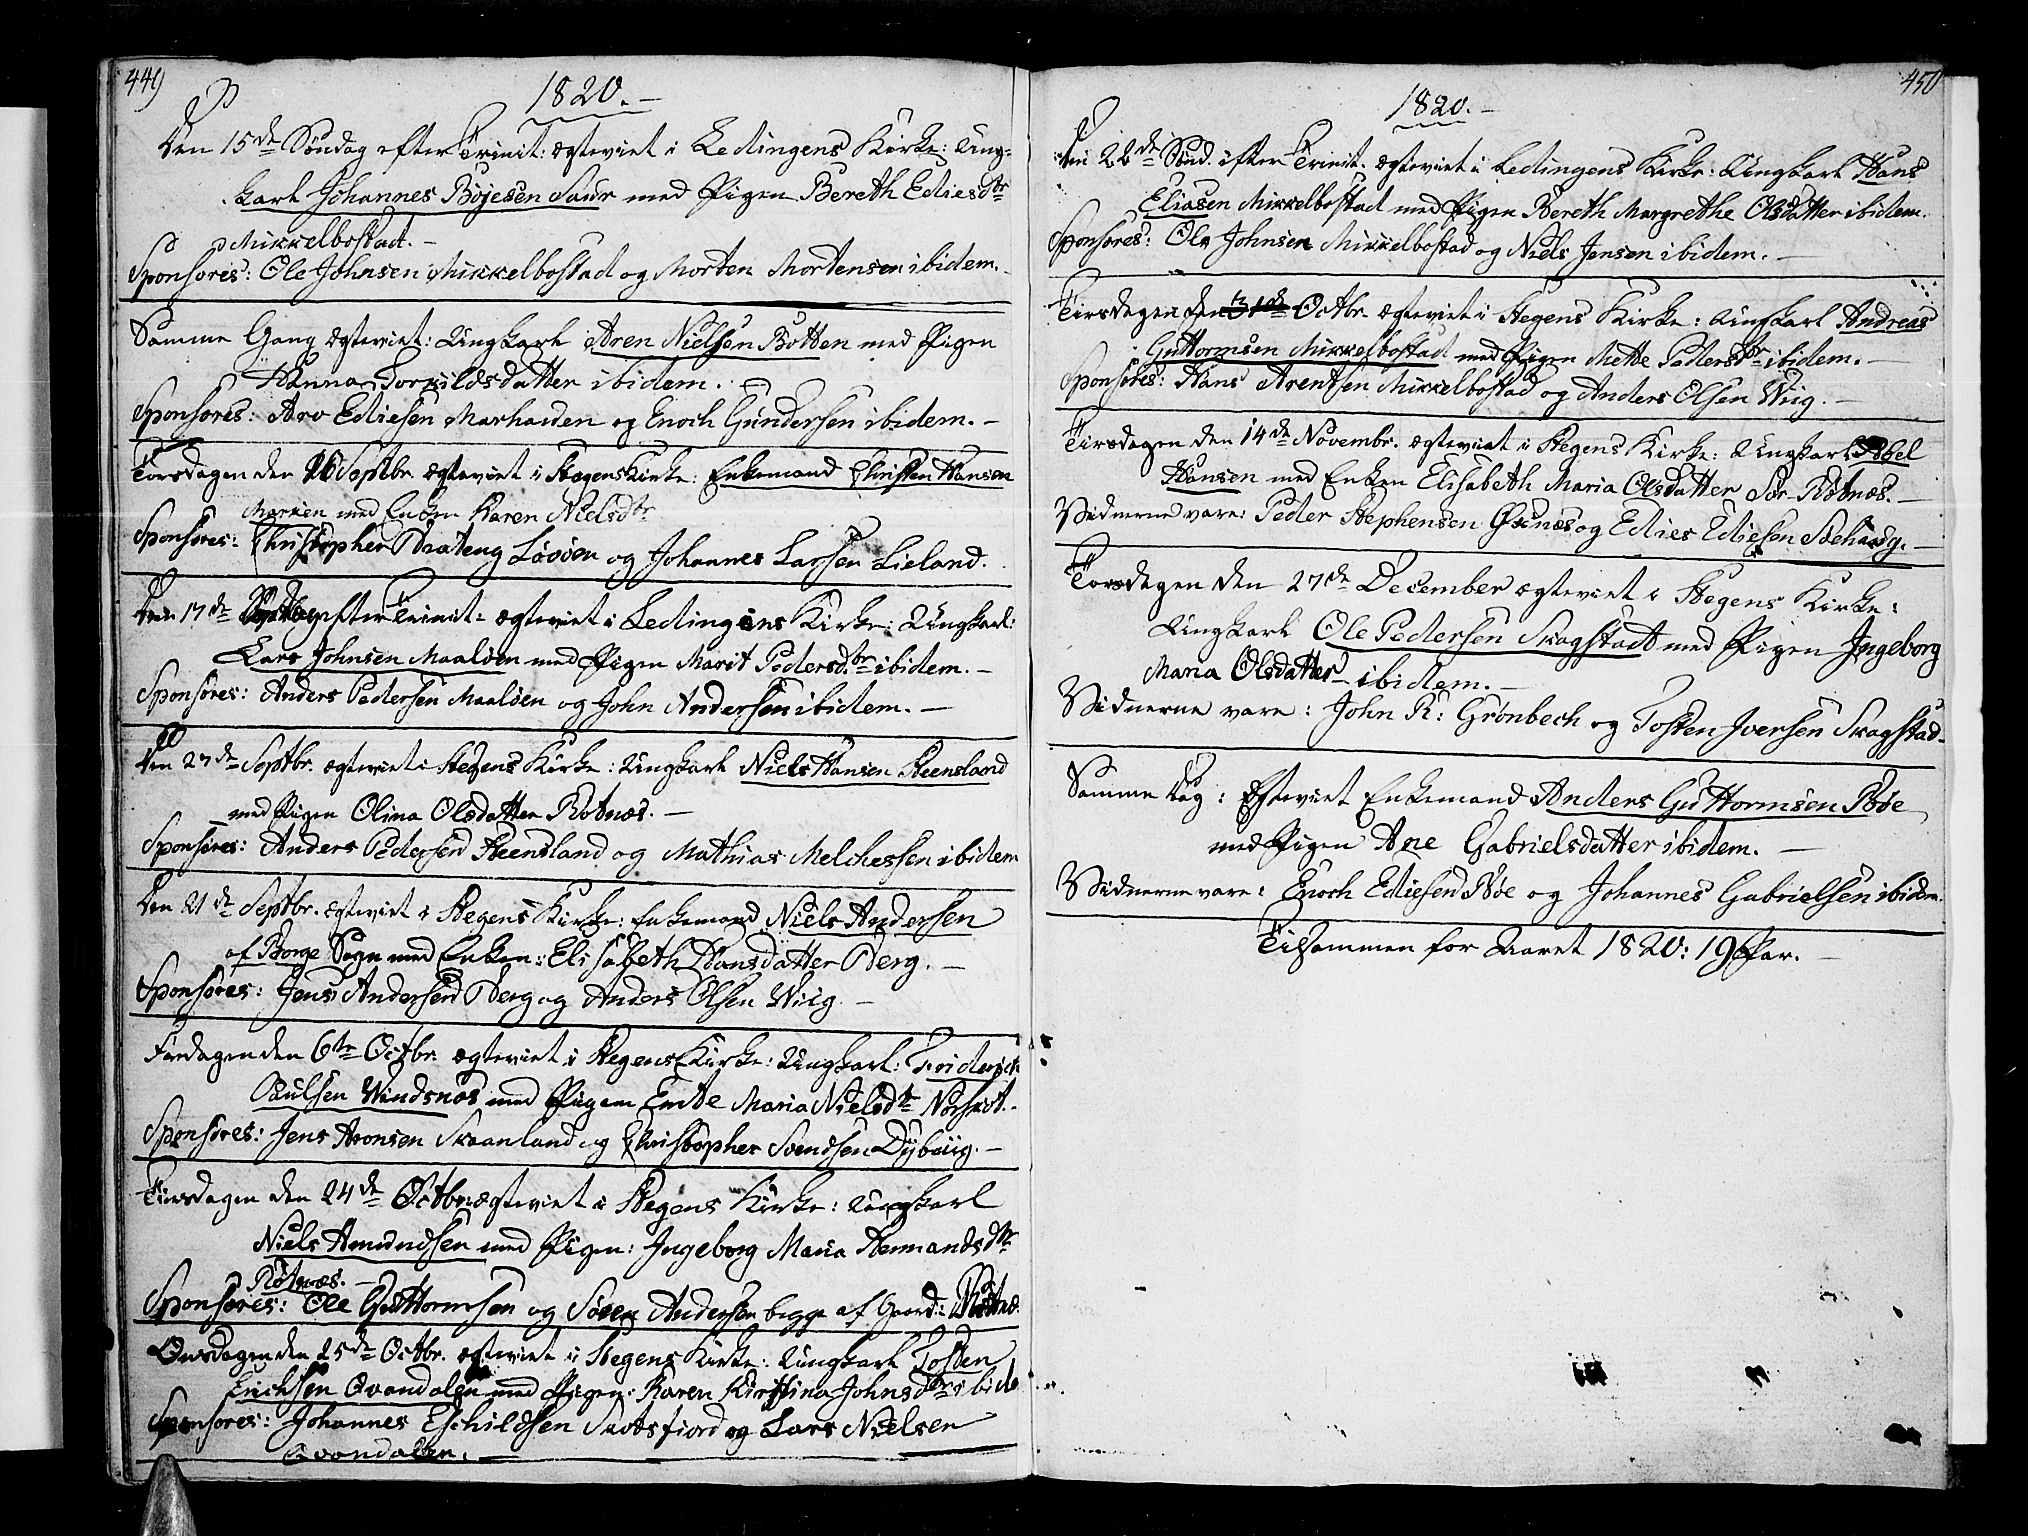 449
1820.–
Den 15de Søndag efter Trinit: ægteviet i Ledingens Kirke: Ung-
karl Johannes Bøjesen Saur med Pigen Bereth Ediesdtr
Mikkelbostad.–
Sponsores: Ole Johnsen Mikkelbostad og Morten Mortensen ibidem.–
Samme Gang ægteviet: Ungkarl Aren Nielsen Botten med Pigen
Hanna Torkildsdatter ibidem.
Sponsores: Aro Ediesen Marhaiden og Enoch Gundersen ibidem.–
Torsdagen den Septbr. ægteviet i Stegens Kirke: Enkemand Christen Hansen
Marken med Enken Karen Nielsdtr
Sponsores: Christopher Brateng Løvøen og Johannes Larsen Lieland.
Den 17de efter Trinit: ægteviet i Ledingens Kirke: Ungkarl:
Lars Johnsen Maaløen med Pigen Marit Pedersdtr ibidem.–
Sponsores: Anders Pedersen Maaløen og John Andersen ibidem.–
Den 27de Septbr. ægteviet i Stegens Kirke: Ungkarl Niels Hansen Steensland
med Pigen Olina Olsdatter Rotnæs.–
Sponsores: Anders Pedersen Steensland og Mathias Melchessen ibidem
Den 21de Septbr. ægteviet i Stegens Kirke: Enkemand Niels Andersen
af Borge Sogn med Enken: Elisabeth Hansdatter Berg.–
Sponsores: Jens Andersen Berg og Anders Olsen Wiig.–
Fredagen den 6te Octbr. ægteviet i Stegens Kirke: Ungkarl: Friderich
Paulsen Windsnæs med Pigen Maria Nielsdtr Norskot.–
Sponsores: Jens Aronsen Skaanland og Christopher Svendsen Dybvig.–
Tirsdagen den 24de Octbr: ægteviet i Stegens Kirke: Ungkarl
Niels Amundsen med Pigen: Ingeborg Maria Hermandsdtr
Røtnæs.–
Sponsores: Ole Guttormsen og Søren Andersen begge af Gaard: Røtnæs
Onsdagen den 25de Octbr. ægteviet i Stegens Kirke: Ungkarl Tosten
Erichsen Qvandalen med Pigen: Karen Kirstina Johnsdtr ibide
Sponsores: Johannes Eschildsen Skotsfiord og Lars Nielsen
Qvandalen.–
450
1820.–
Den 22de Sønd. efter Trinit. ægteviet i Ledingens Kirke: Ungkarl Hans
Eliasen Mikkelbostad med Pigen Bereth Margrethe Olsdatter ibidem.
Sponsores: Ole Johnsen Mikkelbostad og Niels Jensen ibidem.–
Tirsdagen den 31de Octbr. ægteviet i Stegens Kirke: Ungkarl Andreas
Guttormsen Mikkelbostad med Pigen Mette Pedersdtr ibidem.–
Sponsores: Hans Arentsen Mikkelbostad og Anders Olsen Wiig.–
Tirsdagen den 14de Novembr. ægteviet i Stegens Kirke: Ungkarl Abel
Hansen med Enken Elisabeth Maria Olsdatter Sør-Røtnæs.–
Vidnerne vare: Peder Stephensen Øxnæs og Edies Ediesen Solhaug.–
Torsdagen den 27de December ægteviet i Stegens Kirke:
Ungkarl Ole Pedersen Skogstad med Pigen Ingeborg
Maria Olsdatter ibidem.–
Vidnerne vare: John R: Grønbech og Tosten Iversen Skogstad–
Samme Dag: Egteviet Enkemand Anders Guttormsen Bøe
med Pigen Ane Gabrielsdatter ibidem.–
Vidnerne vare: Enoch Ediesen Bøe og Johannes Gabrielsen ibidem.
Tilsammen for Aaret 1820: 19 Par.–